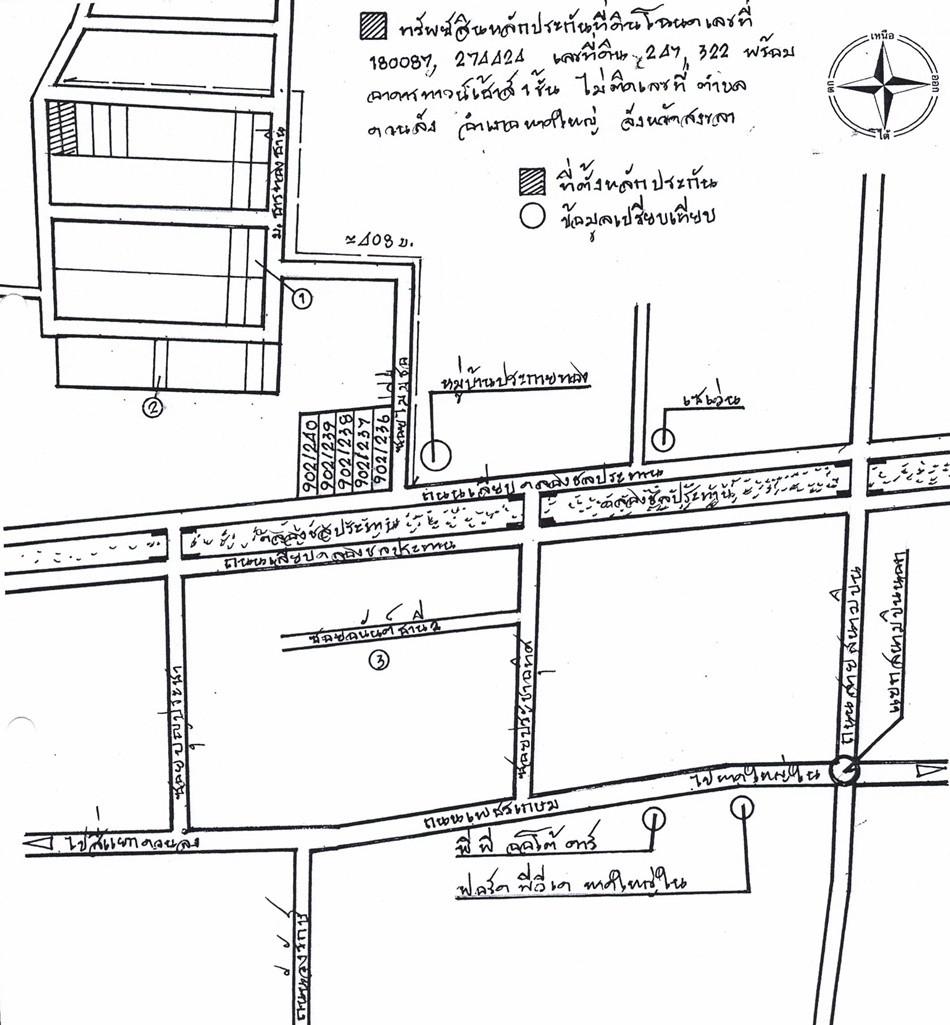 ทรัพย์สินหลักประกันที่ดินโฉนดเลขที่
180087, 274424 เลขที่ดิน 247, 322 พร้อม
อาคารทาวน์เฮ้าส์ 1 ชั้น ไม่ติดเลขที่ ตำบล
ควนลัง อำเภอหาดใหญ่ จังหวัดสงขลา
เหนือ
ออก
ตก
ใต้
ที่ตั้งหลักประกัน
ข้อมูลเปรียบเทียบ
ม.ธารทองธานี
≈408 ม.
1
2
หมู่บ้านประกายทอง
เซเว่น
902/240
902/239
902/238
902/237
902/236
ซอยไม่มีชื่อ
ถนนเลียบคลองชลประทาน
คลองชลประทาน
คลองชลประทาน
ถนนเลียบคลองชลประทาน
3
ซอยปุณประชา
ซอยประชาอุทิศ
ถนนสายสนามบิน
แยกสนามบินนอก
ไปหาดใหญ่ใน
ถนนเพชรเกษม
ไปสี่แยกควนลัง
พี พี ออโต้ คาร์
ฟอร์ด พีวีเค หาดใหญ่ใน